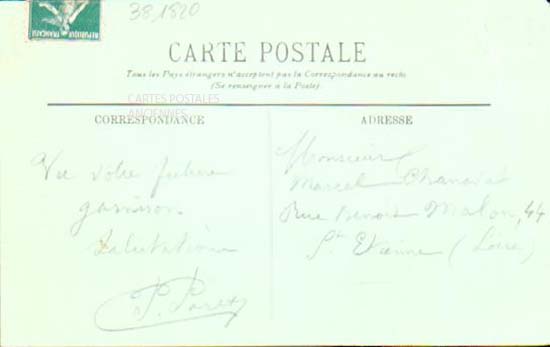 38,1820
RÉPUBLIQUE FRANÇAISE
CARTE POSTALE
Tous les Pays étrangers n'acceptent pas la Correspondance au recto
(Se renseigner à la Poste)
CARTES POSTALES
ANCIENNES
CORRESPONDANCE
Vu votre future
garnison
Salutations
ADRESSE
Monsieur
Marcel
Rue Benoit Malon, 44
St Etienne (Loire)